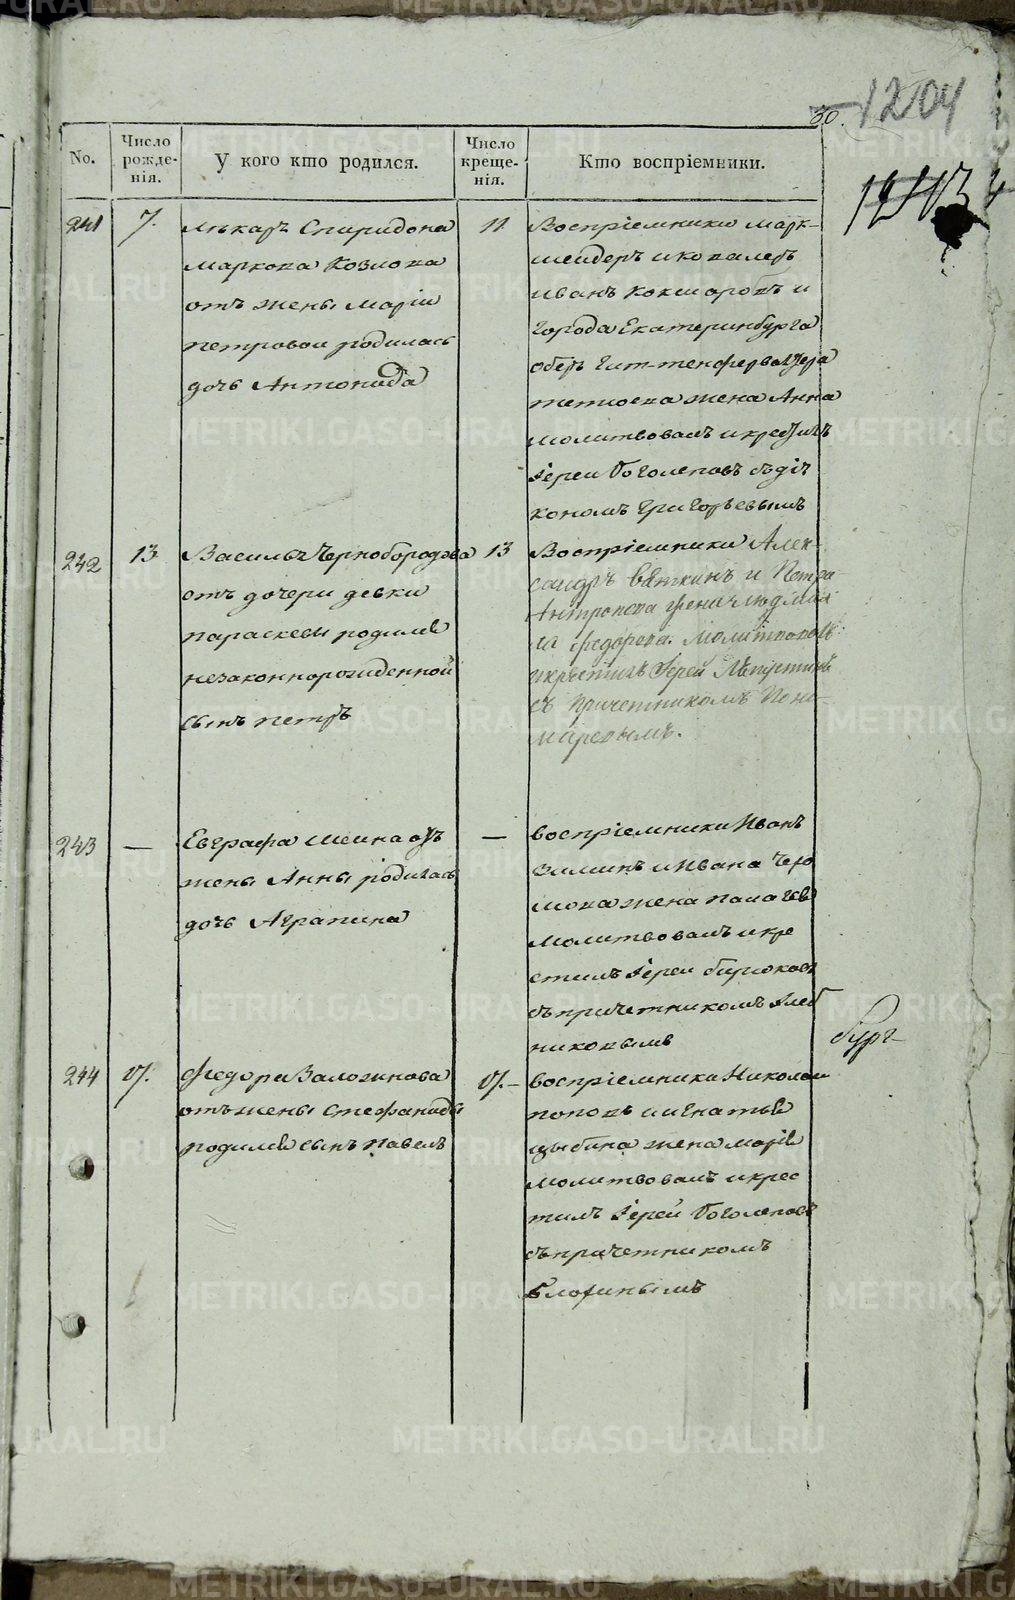 30.
1204
No.
Число рожде-нія.
У кого кто родился.
Число креще-нія.
Кто воспріемники.
241 7. лькарь Спиридона
маркова Козлова
отъ жены маріи
петровои родилась
дочь Антонида
11 Воспріемники марк-
шеидеръ и кавалеръ
иванъ Кокшаровъ и
города Екатеринбурга
оберъ гиттенфервалтера
жена Анна
молитвовалъ и крестилъ
іереи Боголеповъ съ діа
кономъ григорьевымъ
242 13 Василья Чернобородова
отъ дочери девки
параскевы родился
незаконнорожденной
сынъ петръ
13 Воспріемники Алек-
сандръ Вяткинъ и Петра
Антропова жена людмил
ла федорова. Молитвовалъ
и крестилъ Іерей
съ причетникомъ Поно-
маревымъ.
243 — Евграфа шеина отъ
жены Анны родилась
дочь Аграпина
— воспріемники Иванъ
Зиминъ и Ивана Черо
мова жена палагея
молитвовалъ и кре
стилъ іереи бирюковъ
съ причетникомъ хлеб
никовымъ
244 17. Федора Валогинова
отъ жены стефаниды
родился сынъ павелъ
17. — воспріемники Николаи
поповъ и игнатья
цыбина жена марія
молитвовалъ и крес
тилъ іереи Боголеповъ
съ причетникомъ
Блогинымъ
METRIKI.GASO-URAL.RU